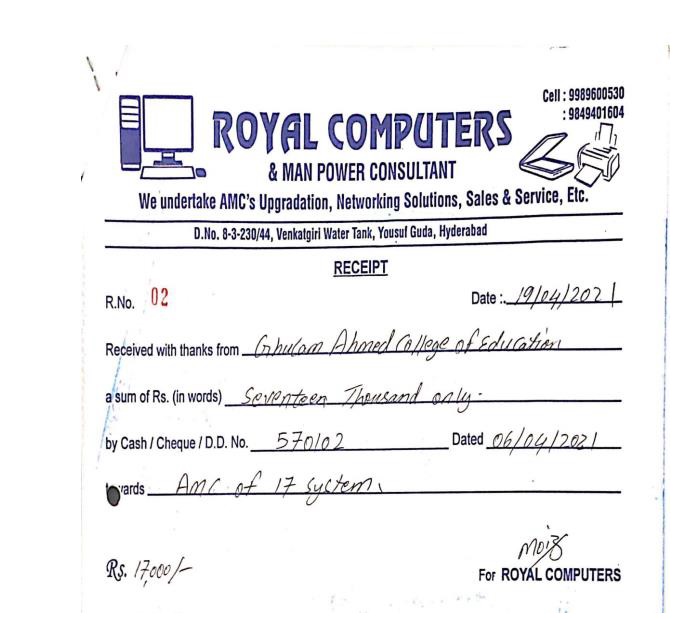 Cell : 9989600530
: 9849401604
ROYAL COMPUTERS
& MAN POWER CONSULTANT
We undertake AMC's Upgradation, Networking Solutions, Sales & Service, Etc.
D.No. 8-3-230/44, Venkatgiri Water Tank, Yousuf Guda, Hyderabad
RECEIPT
R.No. 02 Date :. 19/04/2021
Received with thanks from Ghulam Ahmed College of Education
a sum of Rs. (in words) Seventeen Thousand only.
by Cash / Cheque / D.D. No. 570102 Dated 06/04/2021
towards AMC of 17 system.
Moiz
Rs. 17,000/- For ROYAL COMPUTERS